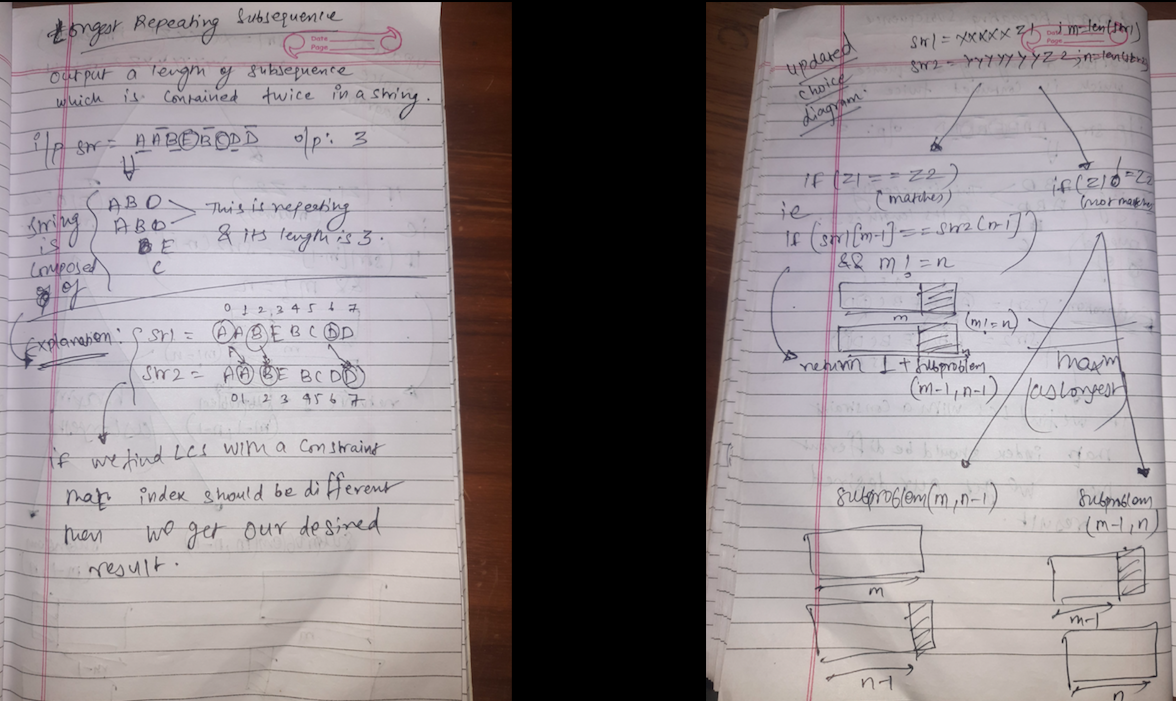 Longest Repeating Subsequence
Date
Page
Output a length of subsequence
which is contained twice in a string.
i/p str = AABEBCDD o/p: 3
ABD
ABD
BE
C
This is repeating
& its length is 3.
string
is
composed
of
0 1 2 3 4 5 6 7
Explanation: str1 = AABEBCDD
str2 = AABEBCDD
0 1 2 3 4 5 6 7
if we find LCS with a constraint
that index should be different
then we get our desired
result.
updated
choice
diagram:
str1 = XXXXXZ1 ; m=len(str1)
str2 = YYYYYYYZ2 ; n=len(str2)
Date
Page
if (Z1 == Z2)
(matches)
if (Z1 != Z2
(not matches)
ie
if (str1[m-1] == str2[n-1]
&& m != n
m
(m!=n)
return 1 + subproblem
(m-1, n-1)
maxm
(as longest)
subproblem(m, n-1)
subproblem
(m-1, n)
m
n-1
m-1
n